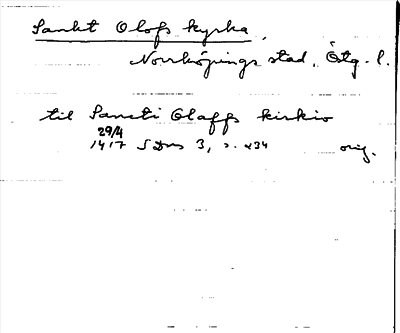 Sankt Olofs kyrka,
Norrköpings stad, Ötg. l.
til Sancti Olaffs kirkio
29/4
1417 SDns 3, s. 234 orig.